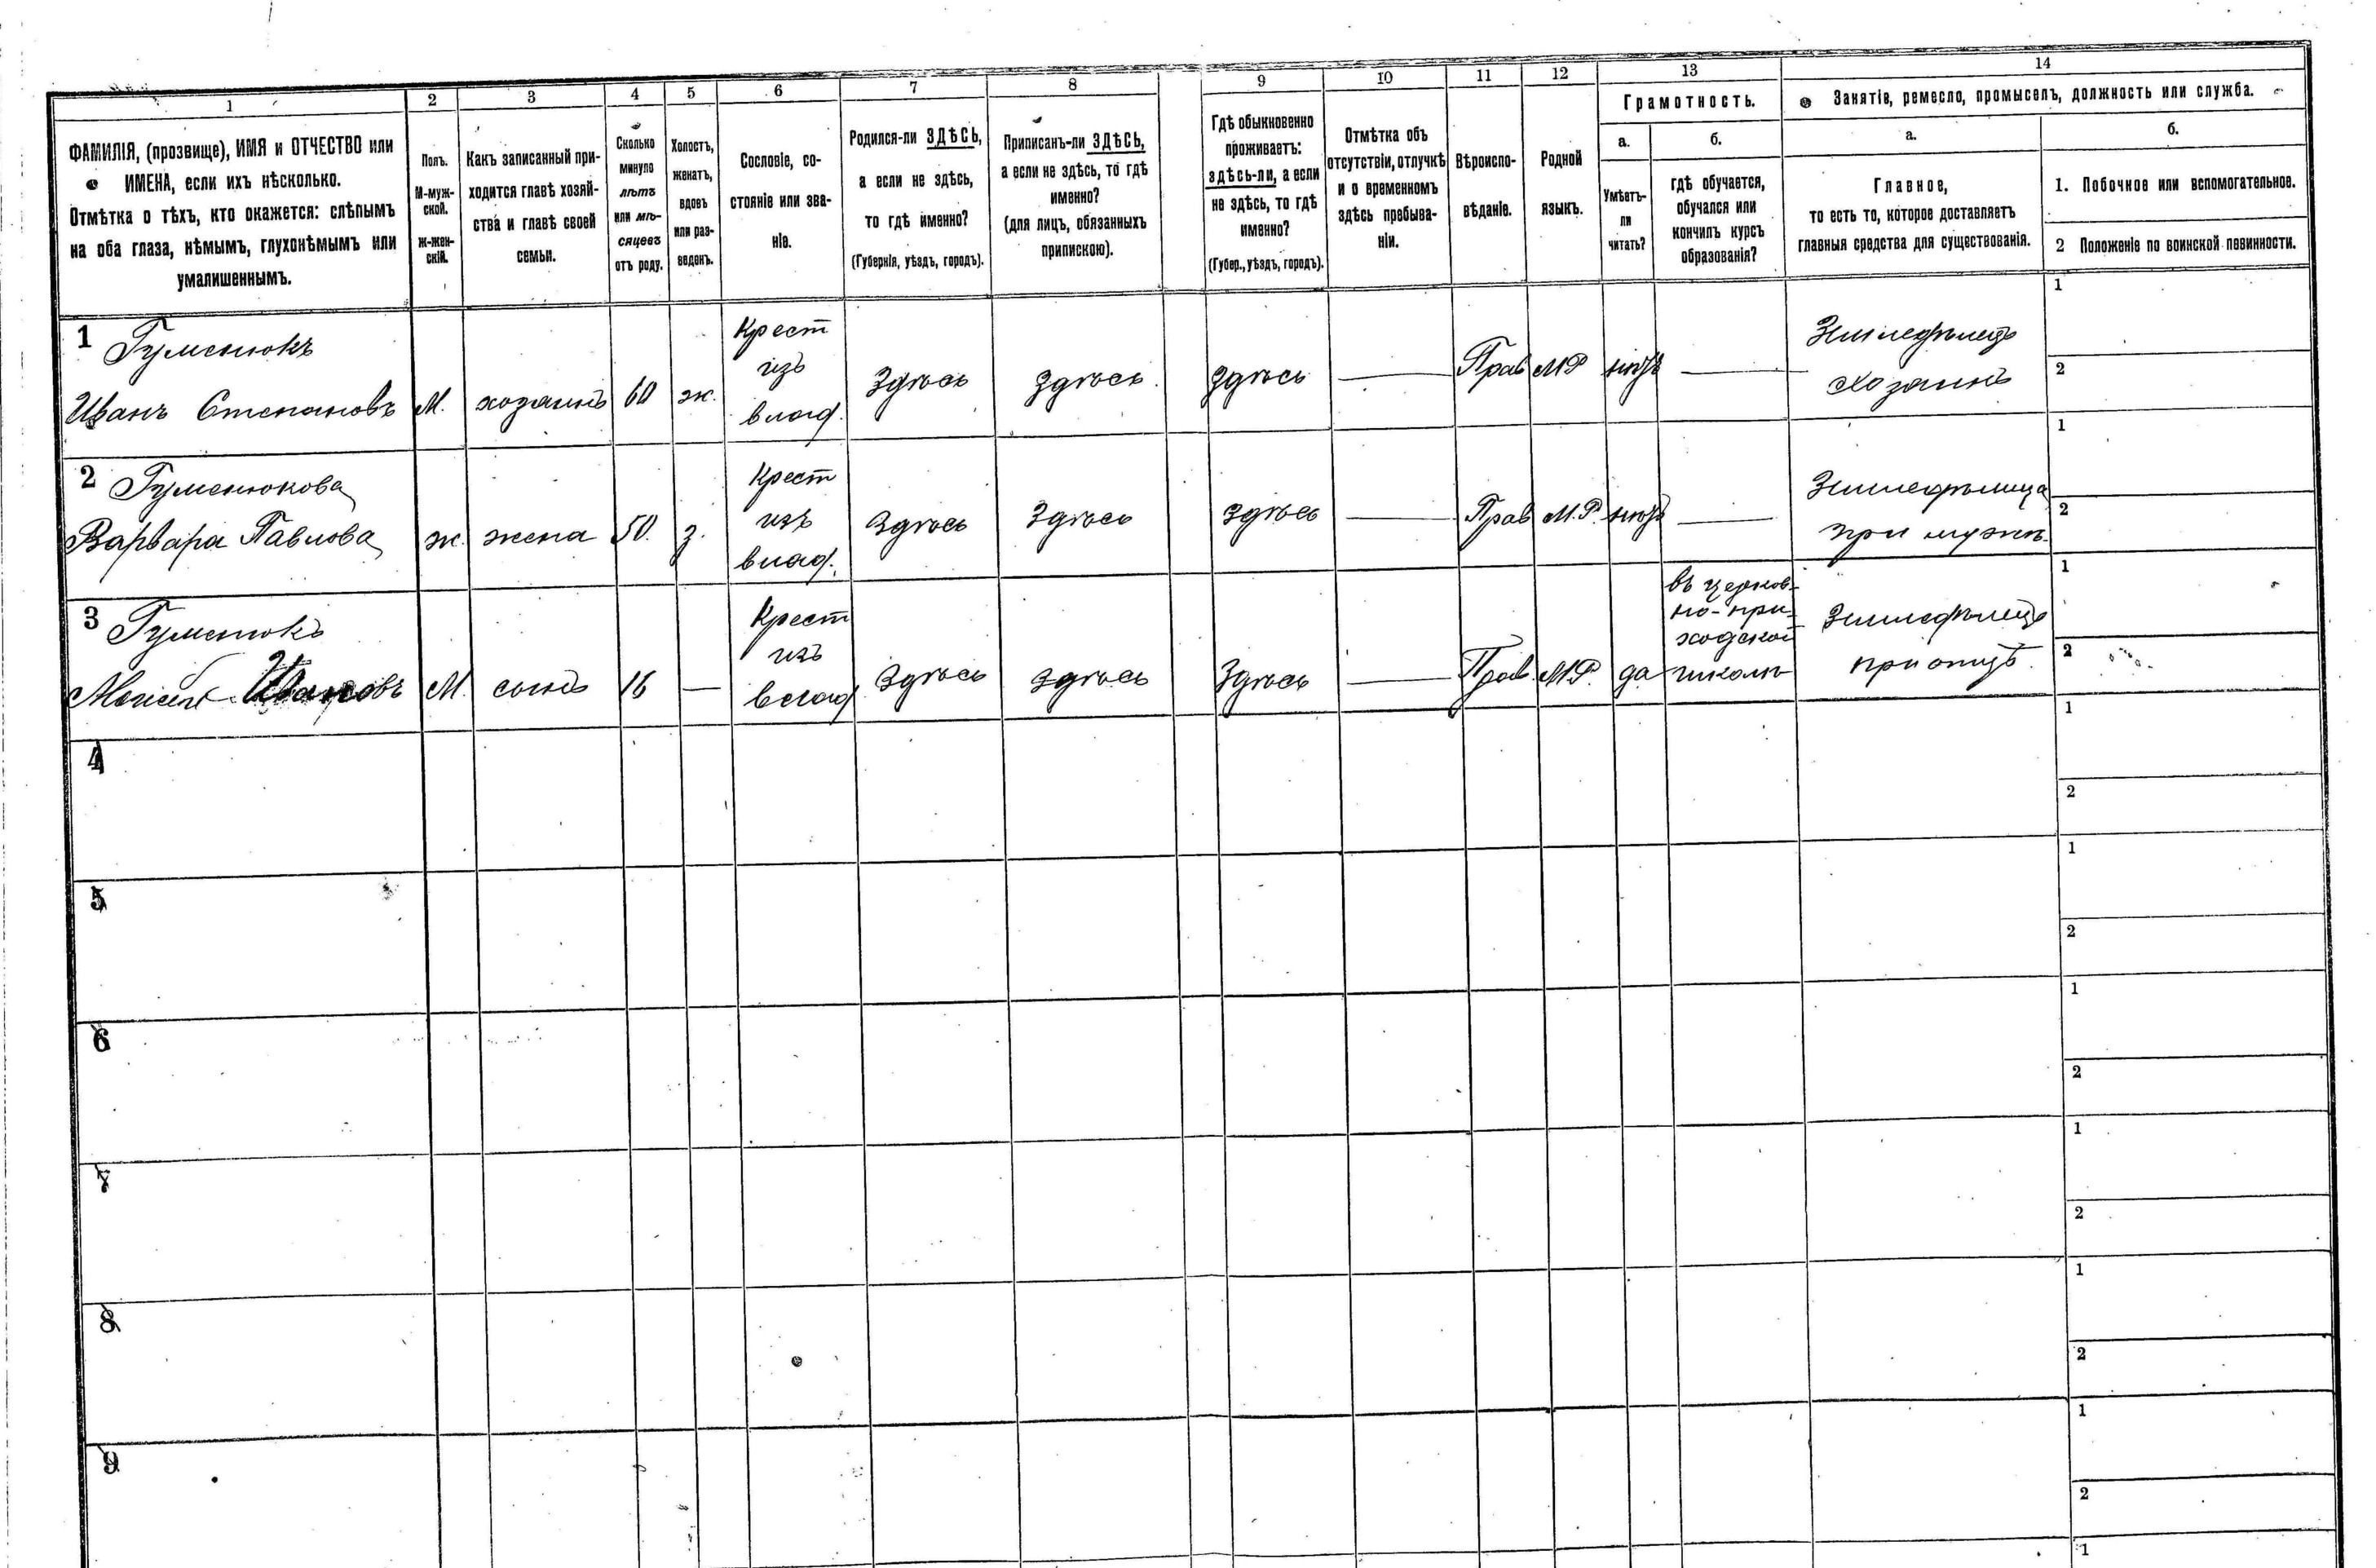 1 2 3 4 5 6 7 8 9 10 11 12 13 14
Грамотность.
Занятія, ремесло, промыселъ, должность или служба.
ФАМИЛІЯ, (прозвище), ИМЯ и ОТЧЕСТВО или
ИМЕНА, если ихъ нѣсколько.
Отмѣтка о тѣхъ, кто окажется: слѣпымъ
на оба глаза, нѣмымъ, глухонѣмымъ или
умалишеннымъ.
Полъ.
М-муж-
ской.
Ж-жен-
скій.
Какъ записанный при-
ходится главѣ хозяй-
ства и главѣ своей
семьи.
Сколько
минуло
лѣтъ
или мѣ-
сяцевъ
отъ роду.
Холостъ,
женатъ,
вдовъ
или раз-
веденъ.
Сословіе, со-
стояніе или зва-
ніе.
Родился-ли ЗДѢСЬ,
а если не здѣсь,
то гдѣ именно?
(Губернія, уѣздъ, городъ).
Приписанъ-ли ЗДѢСЬ,
а если не здѣсь, то гдѣ
именно?
(для лицъ, обязанныхъ
припискою).
Гдѣ обыкновенно
проживаетъ:
здѣсь-ли, а если
не здѣсь, то гдѣ
именно?
(Губер., уѣздъ, городъ).
Отмѣтка объ
отсутствіи, отлучкѣ
и о временномъ
здѣсь пребыва-
ніи.
Вѣроиспо-
вѣданіе.
Родной
языкъ.
а.
Умѣетъ-
ли
читать?
б.
гдѣ обучается,
обучался или
кончилъ курсъ
образованія?
а.
Главное,
то есть то, которое доставляетъ
главныя средства для существованія.
б.
1. Побочное или вспомогательное.
2 Положеніе по воинской повинности.
1 Гуменюкъ
Иванъ Степановъ
М.
хозяинъ
60
ж.
Крест
изъ
влад.
Здѣсь
Здѣсь
Здѣсь
—
Прав
М.Р
нѣтъ
—
Земледѣлецъ
хозяинъ
1
2
2 Гуменюкова
Варвара Павлова
ж.
жена
50.
з.
Крест
изъ
влад.
Здѣсь
Здѣсь
Здѣсь
—
Прав
М.Р.
нѣтъ
—
Земледѣлица
при мужѣ.
1
2
3 Гуменюкъ
Ивановъ
М.
сынъ
16
—
Крест
изъ
влад
Здѣсь
Здѣсь
Здѣсь
—
Прав.
М.Р.
да
въ церков-
но-при-
ходской
школѣ
Земледѣлецъ
при отцѣ.
1
2
4
1
2
5
1
2
6
1
2
7
1
2
8
1
2
9
1
2
1